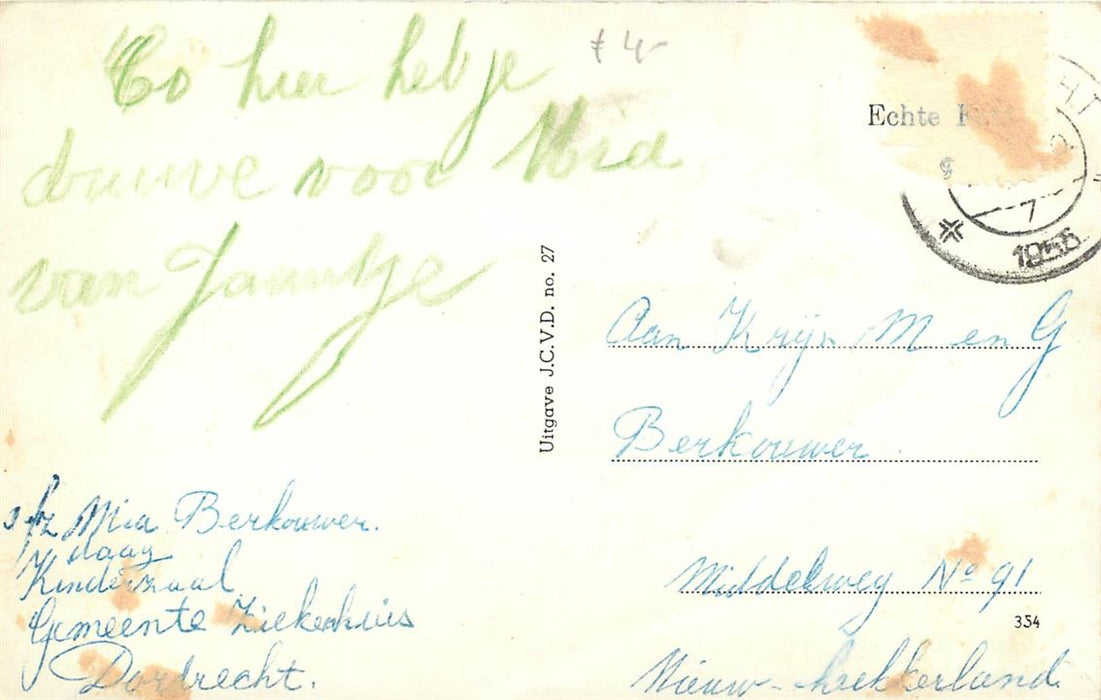 Co hier heb je
douwe voor Mia
van Jaantje
Mia Berkouwer.
daag
Kinderzaal
Gemeente Ziekenhuis
Dordrecht.
Uitgave J.C.V.D. no. 27
Echte
7
1958
Aan Krijn M en G
Berkouwer
Middelweg No 91
354
Nieuw-Lekkerland.